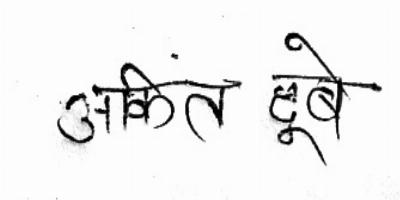 अकिंत दूबे